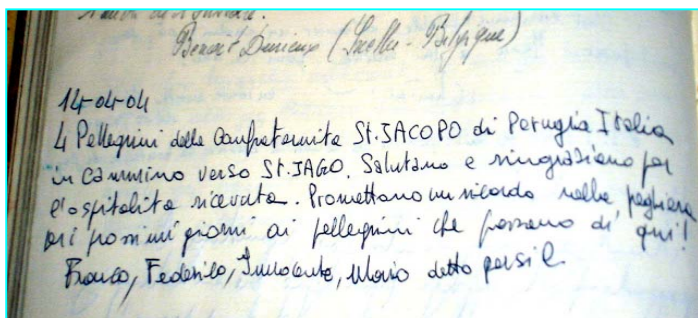 Benoit (Ixelles - Belgique)
14-04-04
4 Pellegrini della Confraternita St. JACOPO di Perugia Italia
in cammino verso St. JAGO. Salutano e ringraziano per
l'ospitalita ricevuta. Promettono un ricordo nella preghiera
nei possimi giorni ai pellegrini che passano di qui!
Franco, Federico, Innocente, Mario detto persil